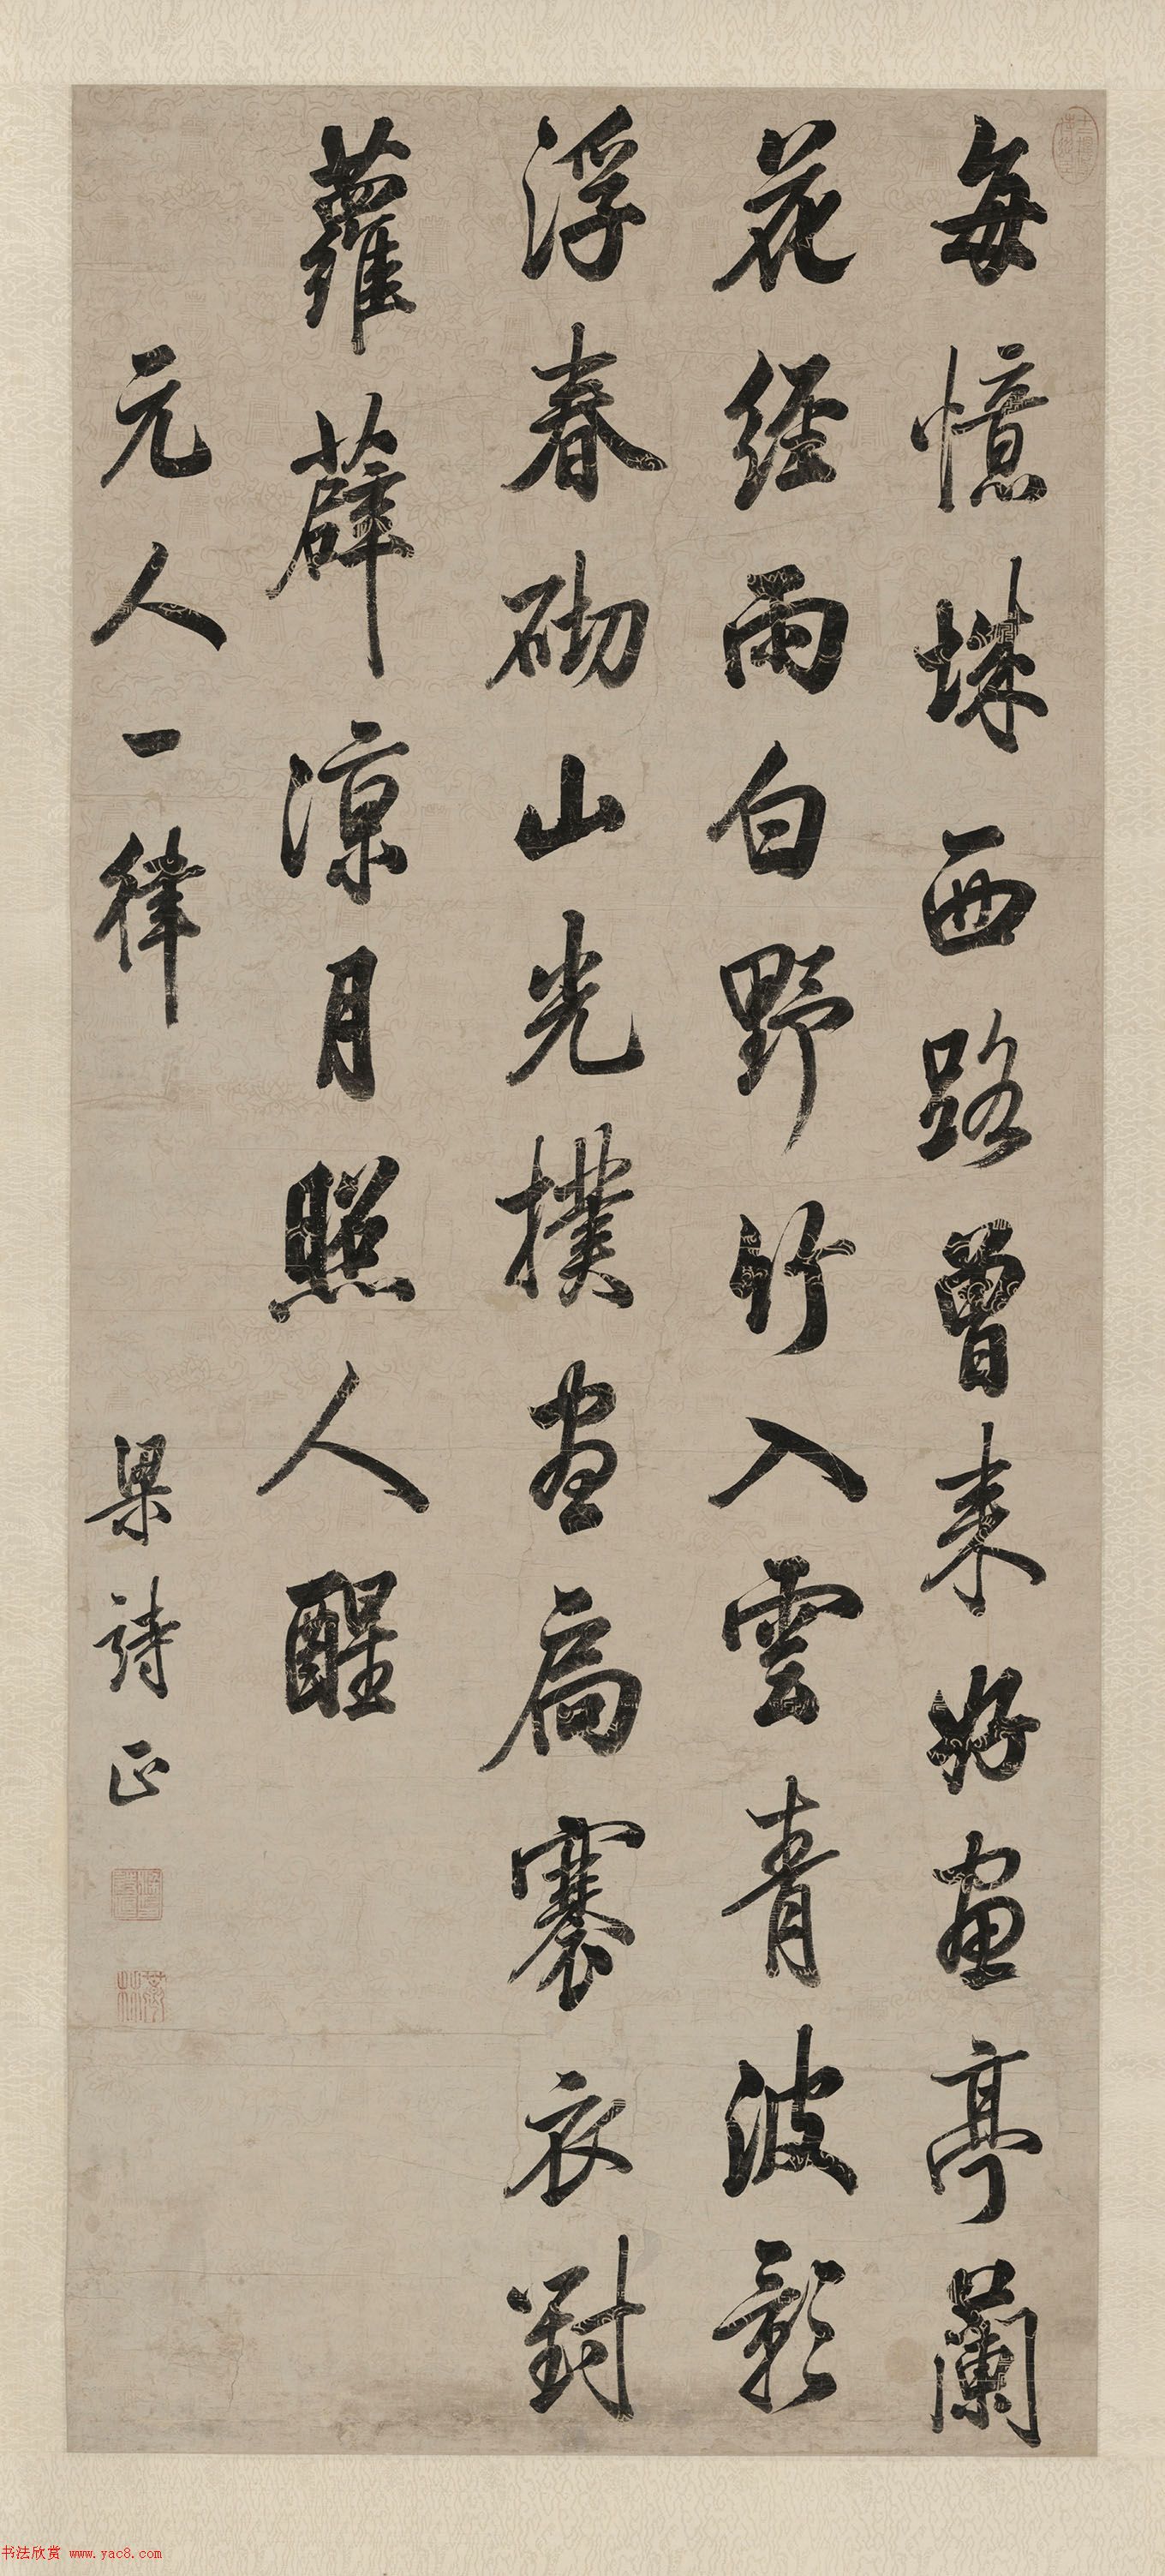 每憶城西路曾來好畫亭闌
花經雨白野竹入雲青波影
浮春砌山光撲畫扃褰衣對
蘿薜涼月照人醒
元人一律
梁詩正
书法欣赏 www.yac8.com